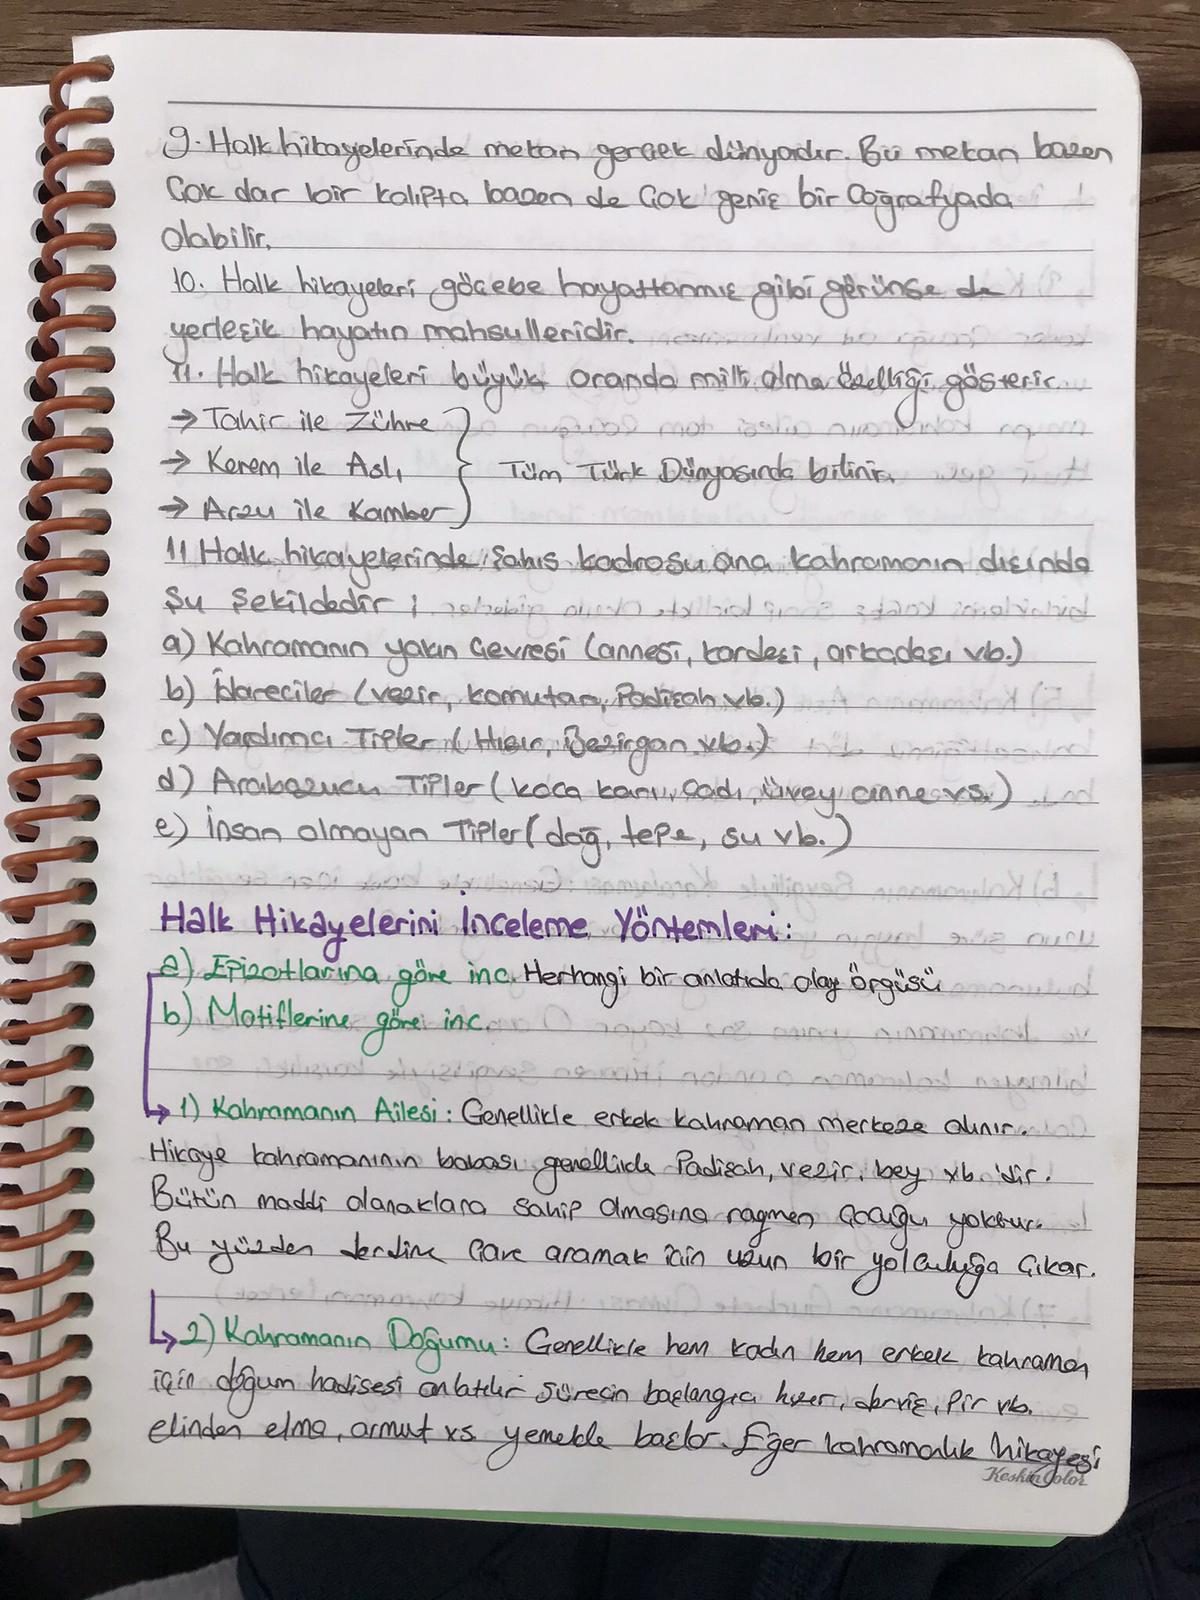 9. Halk hikayelerinde mekan gerçek dünyadır. Bu mekan bazen
çok dar bir kalıpta bazen de çok geniş bir coğrafyada
olabilir.
10. Halk hikayeleri göcebe hayattanmış gibi görünse de
yerleşik hayatın mahsulleridir.
11. Halk hikayeleri büyük oranda milli olma özelliği gösterir.
→ Tahir ile Zühre
→ Kerem ile Aslı } Tüm Türk Dünyasında bilinir.
→ Arzu ile Kamber
11 Halk hikayelerinde şahıs kadrosu ana kahramanın dışında
şu şekildedir ;
a) Kahramanın yakın çevresi (annesi, kardeşi, arkadaşı vb.)
b) İdareciler (vezir, komutan, Padişah vb.)
c) Yardımcı Tipler ( Hızır, Bezirgan vb.)
d) Arabozucu Tipler ( koca karı, cadı, üvey anne vs.)
e) İnsan olmayan Tipler ( dağ, tepe, su vb.)
Halk Hikayelerini İnceleme Yöntemleri:
a) Epizotlarına göre inc. Herhangi bir anlatıda olay örgüsü
b) Motiflerine göre inc.
1) Kahramanın Ailesi : Genellikle erkek kahraman merkeze alınır.
Hikaye kahramanının babası genellikle Padişah, vezir, bey vb. 'dir.
Bütün maddi olanaklara sahip olmasına rağmen çocuğu yoktur.
Bu yüzden derdine çare aramak için uzun bir yolculuğa çıkar.
2) Kahramanın Doğumu : Genellikle hem kadın hem erkek kahraman
için doğum hadisesi anlatılır sürecin başlangıcı hızır, derviş, Pir vb.
elinden elma, armut vs. yemekle başlar. Eğer kahramanlık hikayesi
Keskin Color